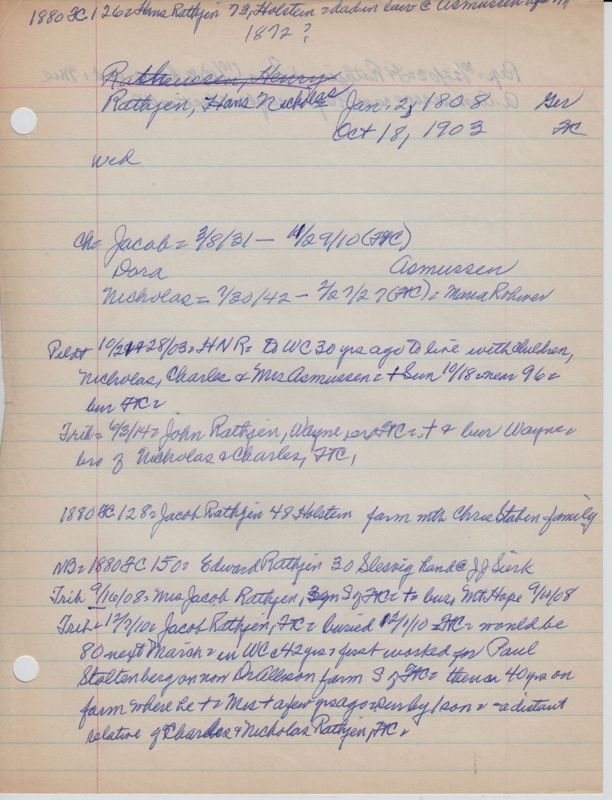 1880 FC 126 = Hans Rathjen 73, Holstein = dad in law @ Asmussen
1872?
Rathjen, Hans Nicholas Jan. 2, 1808 Ger
Oct 18, 1903 FC
wd
Ch = Jacob = 3/8/31 – 11/29/10 (FC)
Dora Asmussen
Nicholas = 7/30/42 – 2/27/27 (FC) = Maria Rohwer
Pilot 10/21 + 28/03 = HNR = to WC 30 yrs ago to live with children,
Nicholas, Charles & Mrs Asmussen = + Sun 10/18 = near 96 =
bur FC =
Trib = 6/3/14 = John Rathjen, Wayne, FC = + & bur Wayne =
bro of Nicholas & Charles, FC,
1880 FC 128 = Jacob Rathjen 48 Holstein farm mth Chris Staben family
NB = 1880 FC 150 = Edward Rathjen 30 Slesvig hand @ J J Sierk
Trib 9/16/08 = Mrs Jacob Rathjen, S of FC = + bur, Mt Hope 9/11/08
Trib = 12/7/10 = Jacob Rathjen, FC = buried 12/1/10 = FC = would be
80 next March = in WC 42 yrs = first worked for Paul
Stoltenberg on now Dr Allison farm S of FC = then on 40 yrs on
farm where he + = Mrs + a few yrs ago = sur by 1 son = – a distant
relative of Charles & Nicholas Rathjen, FC =